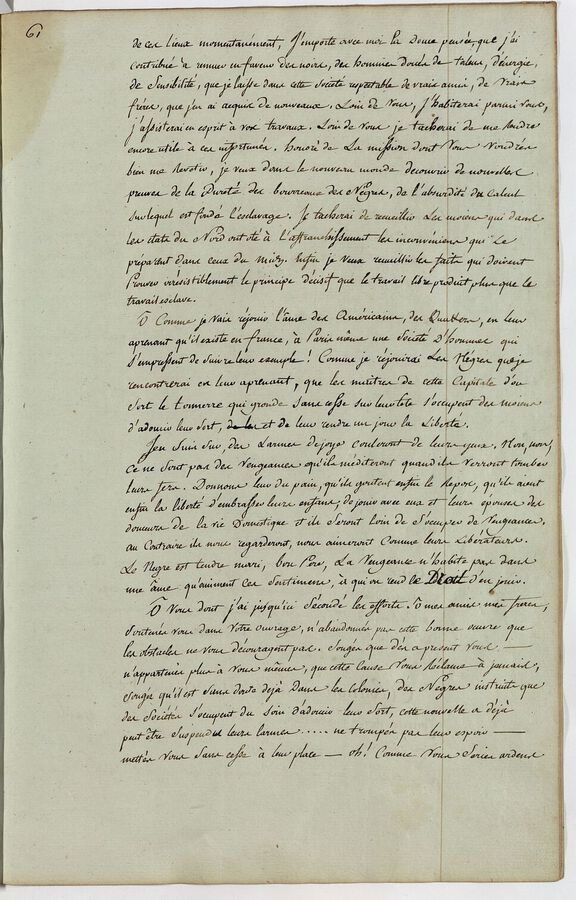 61
de ces lieux momentanément, J'importe avec moi la Douce pensée, que j'ai
contribué à remuer en faveur des noirs, des hommes doués de talens, d'énergie,
de Sensibilité, que je laisse dans cette Société respectable de vrais amis, de Vrais
freres, que j'en ai acquis de nouveaux. Loin de Vous, j'habiterai parmi Vous,
j'assisterai en esprit à vos travaux. Loin de Vous je tacherai de me Rendre
encore utile à ces infortunés. honoré de La mission dont Vous Voudrés
bien me Revetir, je veux dans le nouveau monde Decouvrir de nouvelles
preuves de la Dureté des bourreaux des Négres, de l'absurdité du Calcul
Sur lequel est fondé l'esclavage. Je tacherai de recueillir Les moiens qui dans
les états du Nord ont oté à l'affranchissement les inconveniens qui Se
préparent dans ceux du midy. Enfin je Veux recueillir les faits qui doivent
Prouver irrésistiblement le principe décisif que le travail libre produit plus que le
travail esclave.
O Comme je Vais réjouir l'âme des Américains, des Quakers, en leur
aprenant qu'il existe en france, à Paris même une Société D'hommes qui
S'empressent de Suivre leur exemple! Comme je réjouirai Les Négres que je
rencontrerai en leur aprenant, que les maitres de cette Capitale d'où
Sort le tonnerre qui gronde Sans cesse Sur leur tete S'occupent des moiens
d'adoucir leur Sort, et de leur rendre un jour la Liberté.
J'en Suis Sur, des Larmes de joye couleront de leurs yeux. Non, non,
Ce ne Sont pas des Vengeances qu'ils méditeront quand ils Verront tomber
leurs fers. Donnons leur du pain, qu'ils goutent enfin le Repos, qu'ils aient
enfin la liberté d'embrasser leurs enfans, de jouir avec eux et leurs épouses des
douceurs de la vie Domestique et ils Seront loin de S'occuper de Vengeances.
au Contraire ils nous regarderont, nous aimeront Comme leurs Libérateurs.
Le Negre est tendre mari, bon Pere, La Vengeance n'habite pas dans
une âme qu'animent ces Sentimens, à qui on rend le Droit d'en jouir.
O Vous dont j'ai jusqu'ici Secondé les efforts. O mes amis mes freres,
Soutenés vous dans Votre ouvrage, n'abandonnés pas cette bonne œuvre que
les obstacles ne vous découragent pas. Songés que dès a present Vous —
n'apartenés plus à Vous mêmes, que cette Cause Vous Réclame à jamais,
Songés qu'il est Sans doute déjà Dans les colonies, des Négres instruits que
des Sociétés S'occupent du Soin d'adoucir leur Sort, cette nouvelle a déjà
peut être Suspendu leurs larmes ..... ne trompés pas leur espoir —
mettés Vous Sans cesse à leur place — oh! Comme Vous Seriés ardens